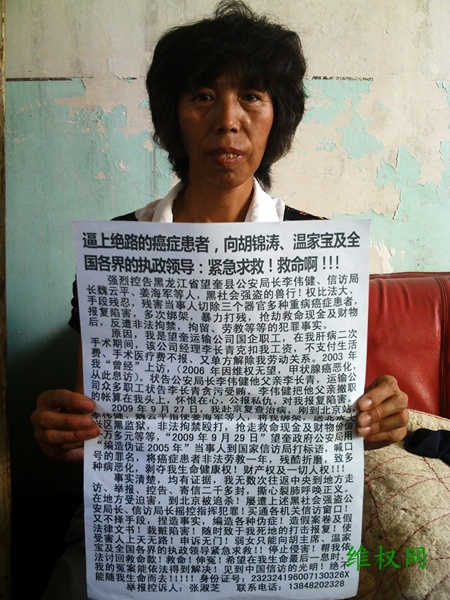 逼上绝路的癌症患者，向胡锦涛、温家宝及全
国各界的执政领导：紧急求救！救命啊！！！
强烈控告黑龙江省望奎县公安局长李伟健、信访局
长魏云平、姜海军等人，黑社会强盗的兽行！权比法大、
手段残忍，残害当事人切除三个器官多种重病癌症患者，
报复陷害，多次绑架，暴力打残，抢劫救命现金及财物
后，反遭非法拘禁，拘留、劳教等等的犯罪事实。
原因，我是望奎运输公司国企职工，在我肝病二次
手术期间，该公司经理李长青克扣我工资，不支付生活
费、手术医疗费不报、又单方解除我劳动关系。2003年
我“曾经”上访，（2006年因维权无望，甲状腺癌恶化，
从此息访）。状告公安局长李伟健他父亲李长青，运输公
司众多职工状告李长青贪污受贿，李伟健把他父亲搬职
的帐算在我头上，怀恨在心，公报私仇，对我报复陷害。
2009年9月27日，我赴京复查治病，刚到北京站，
李伟健、魏云平指使姜海军等人，将我绑架，
兴区黑监狱，非法拘禁殴打，抢走救命现金及财物价值
万多元等等，“2009年9月29日”望奎政府公安局用
“编造伪证2005年”当事人到国家信访局打标语，喊口
号的罪名，将癌症患者非法劳教一年，残酷折磨，致多
种病恶化，剥夺我生命健康权！财产权及一切人权！！！
事实清楚，均有证据，我无数次往返中央到地方走
访、举报、控告、寄信二千多封，撕心裂肺呼唤正义，
在地方受迫害，到北京被追杀！屡遭上述黑社会强盗公
安局长、信访局长摇控指挥犯罪！买通各机关信访窗口！
又不择手段，捏造事实，编造各种伪证！造假案卷及假
法律文书！栽赃陷害！随时致于我死地的打击报复！使
受害人上天无路！申诉无门！弱女只能向胡主席、温家
宝及全国各界的执政领导紧急求救！！停止侵害！帮我依
法讨回救命款！救命！伸冤！希望在我生命最后一息时，
我的冤案能依法得到解决！见到中国信访的光明！绝不
能随我生命而去！！！！！身份证号：232324196007130326X
举报控诉人：张淑芝 联系电话：13848202328
维权网